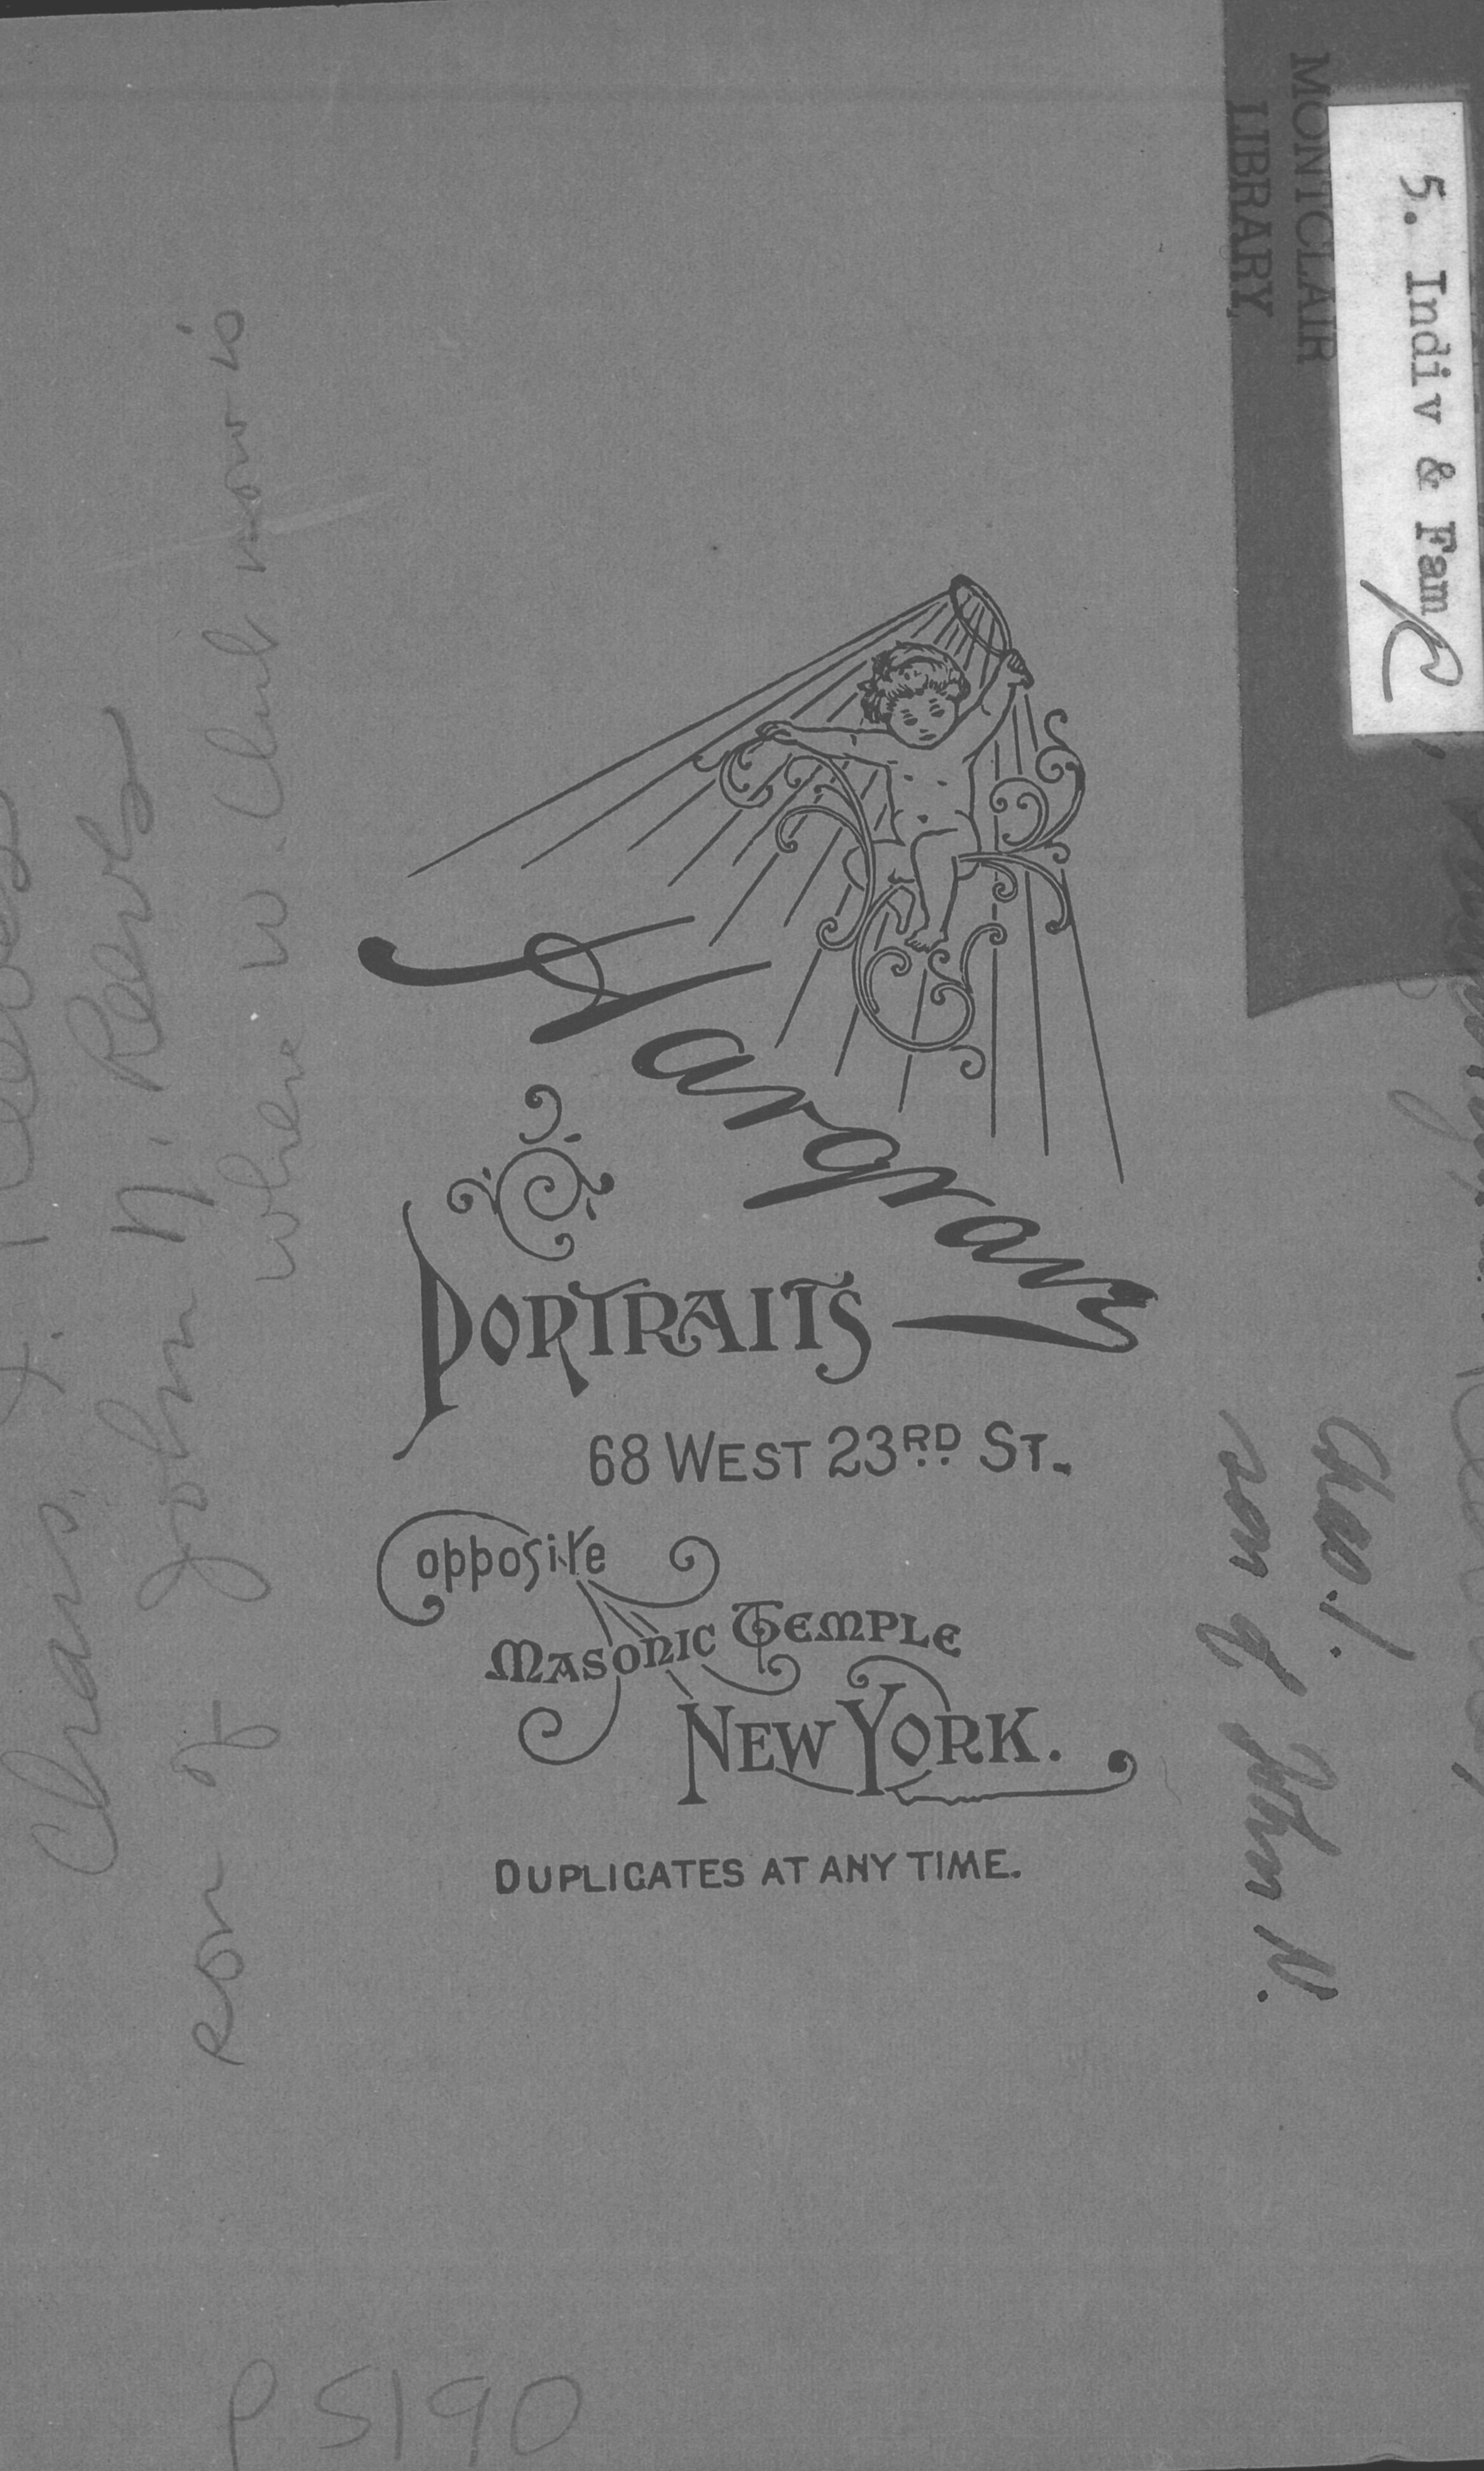 MONTCLAIR
LIBRARY
5. Indiv & Fam R
Yargrav
PORTRAITS
68 WEST 23RD ST.
opposite
MASONIC TEMPLE
NEW YORK.
DUPLICATES AT ANY TIME.
Chas. I. Reeves
son of John N. Reeves
where W. Club now is
Chas. I.
son of John N.
P 5190